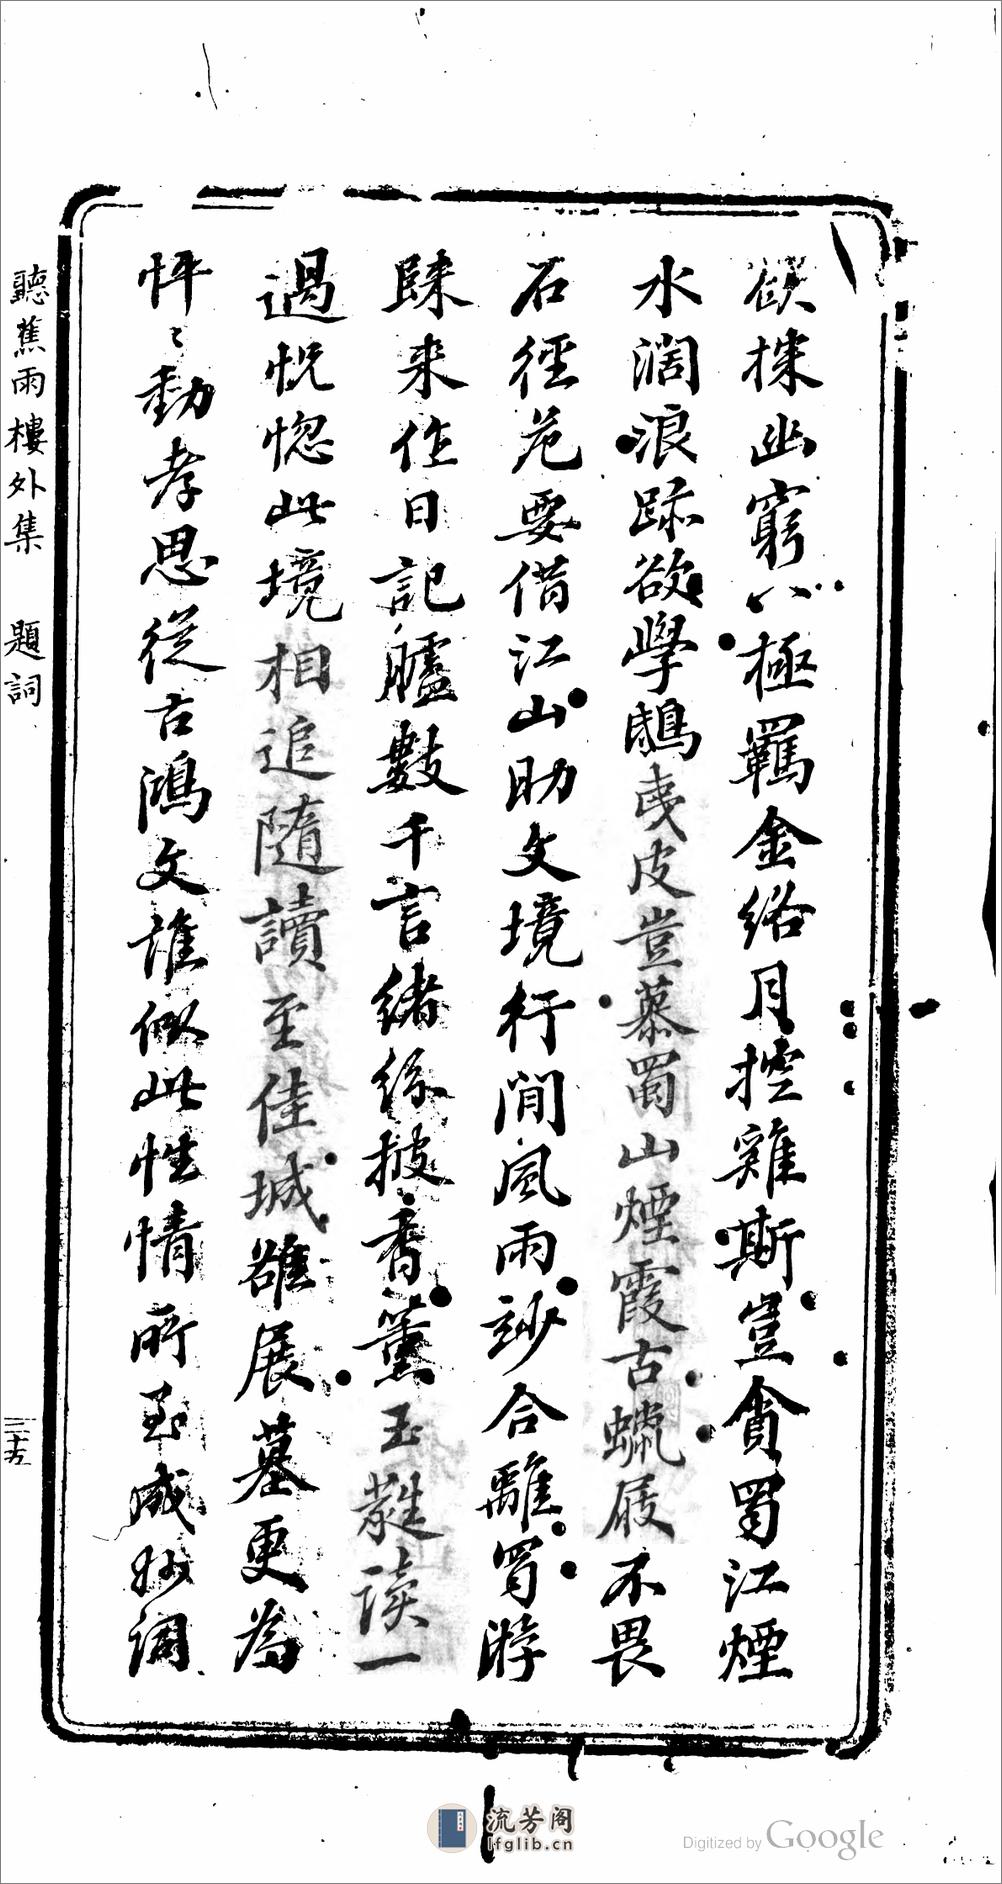 欲探幽窮八極羈金絡月控雞斯豈貪蜀江煙
水濶浪跡欲學鴟夷皮豈慕蜀山煙霞古蠟屐不畏
石徑危要借江山助文境行間風雨紗合離蜀游
歸来作日記臚數千言緒絲披香薰玉蕤读一
過恍惚此境相追隨讀至佳城雖展墓更為
怦〻動孝思從古鴻文誰似此性情所至成妙詞
聽蕉雨樓外集 題詞
三十五
流芳阁
lfglib.cn
Digitized by Google